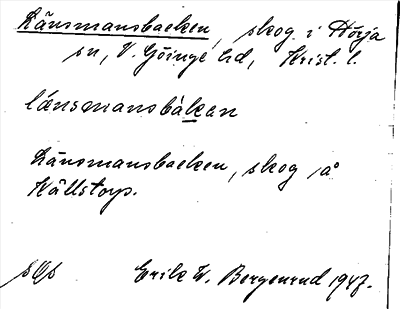 Länsmansbacken, skog i Hörja
sn, V. Göinge hd, Krist. l.
länsmansbàkan
Länsmansbacken, skog på
Källstorp.
Erik W. Bergenrud 1947.